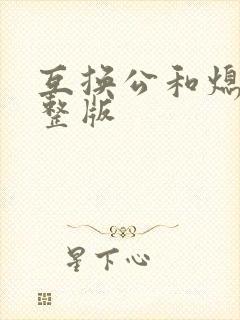 互换公和媳
整版
星下心